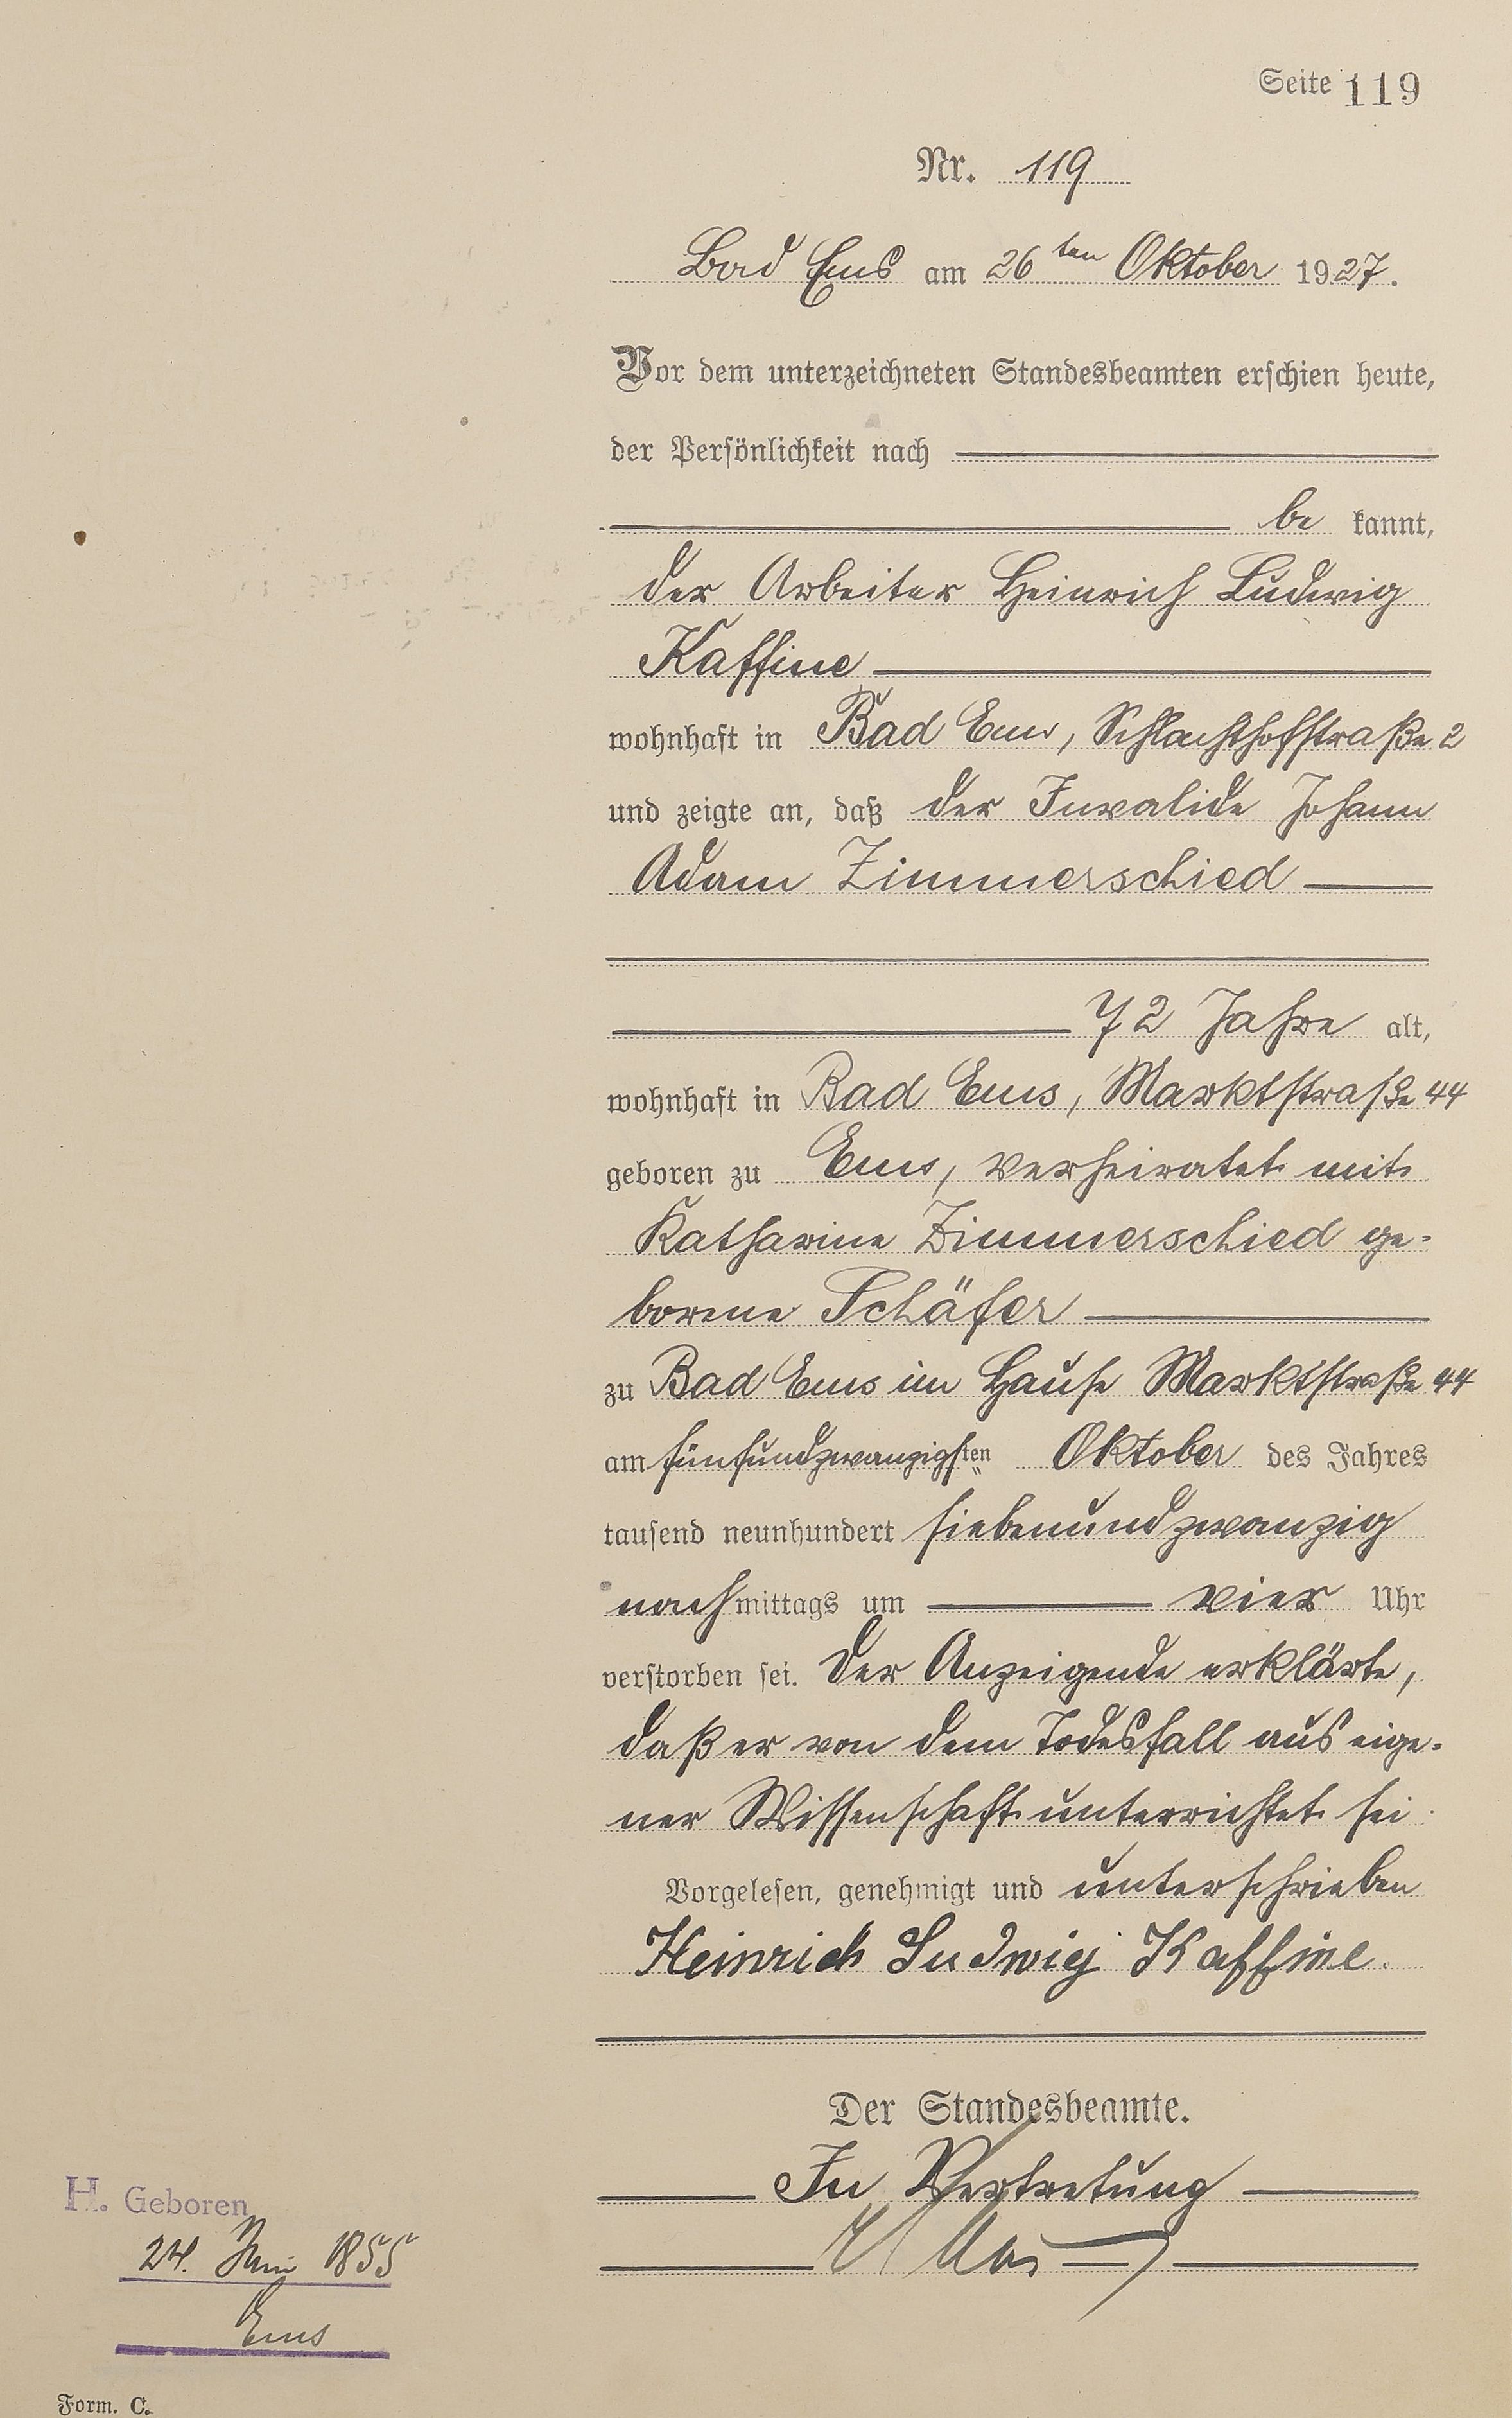 Seite 119
Nr. 119
Bad Ems am 26ten Oktober 1927.
Vor dem unterzeichneten Standesbeamten erschien heute,
der Persönlichkeit nach
be kannt,
der Arbeiter Heinrich Ludwig
Kaffine
wohnhaft in Bad Ems, Schlachthofstraße 2
und zeigte an, daß der Invalide Johann
Adam Zimmerschied
72 Jahre alt,
wohnhaft in Bad Ems, Marktstraße 44
geboren zu Ems, verheiratet mit
Katharina Zimmerschied ge-
borene Schäfer
zu Bad Ems im Hause Marktstraße 44
am fünfundzwanzigsten Oktober des Jahres
tausend neunhundert siebenundzwanzig
nachmittags um vier Uhr
verstorben sei. Der Anzeigende erklärte,
daß er von dem Todesfall aus eige-
ner Wissenschaft unterrichtet sei.
Vorgelesen, genehmigt und unterschrieben
Heinrich Ludwig Kaffine.
Der Standesbeamte.
In Vertretung
H. Geboren
24. 1855
Ems
Form. C.